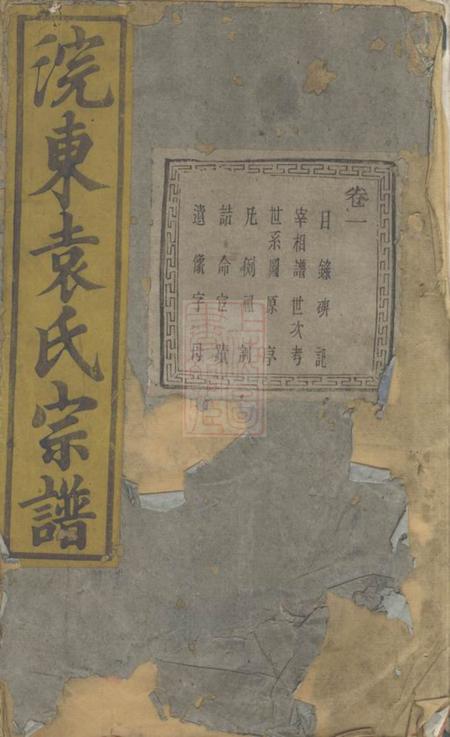 浣東袁氏宗譜
卷一
目錄碑記
宰相譜世次考
世系圖原序
凡例祖制
誥命宦蹟
遺像字母